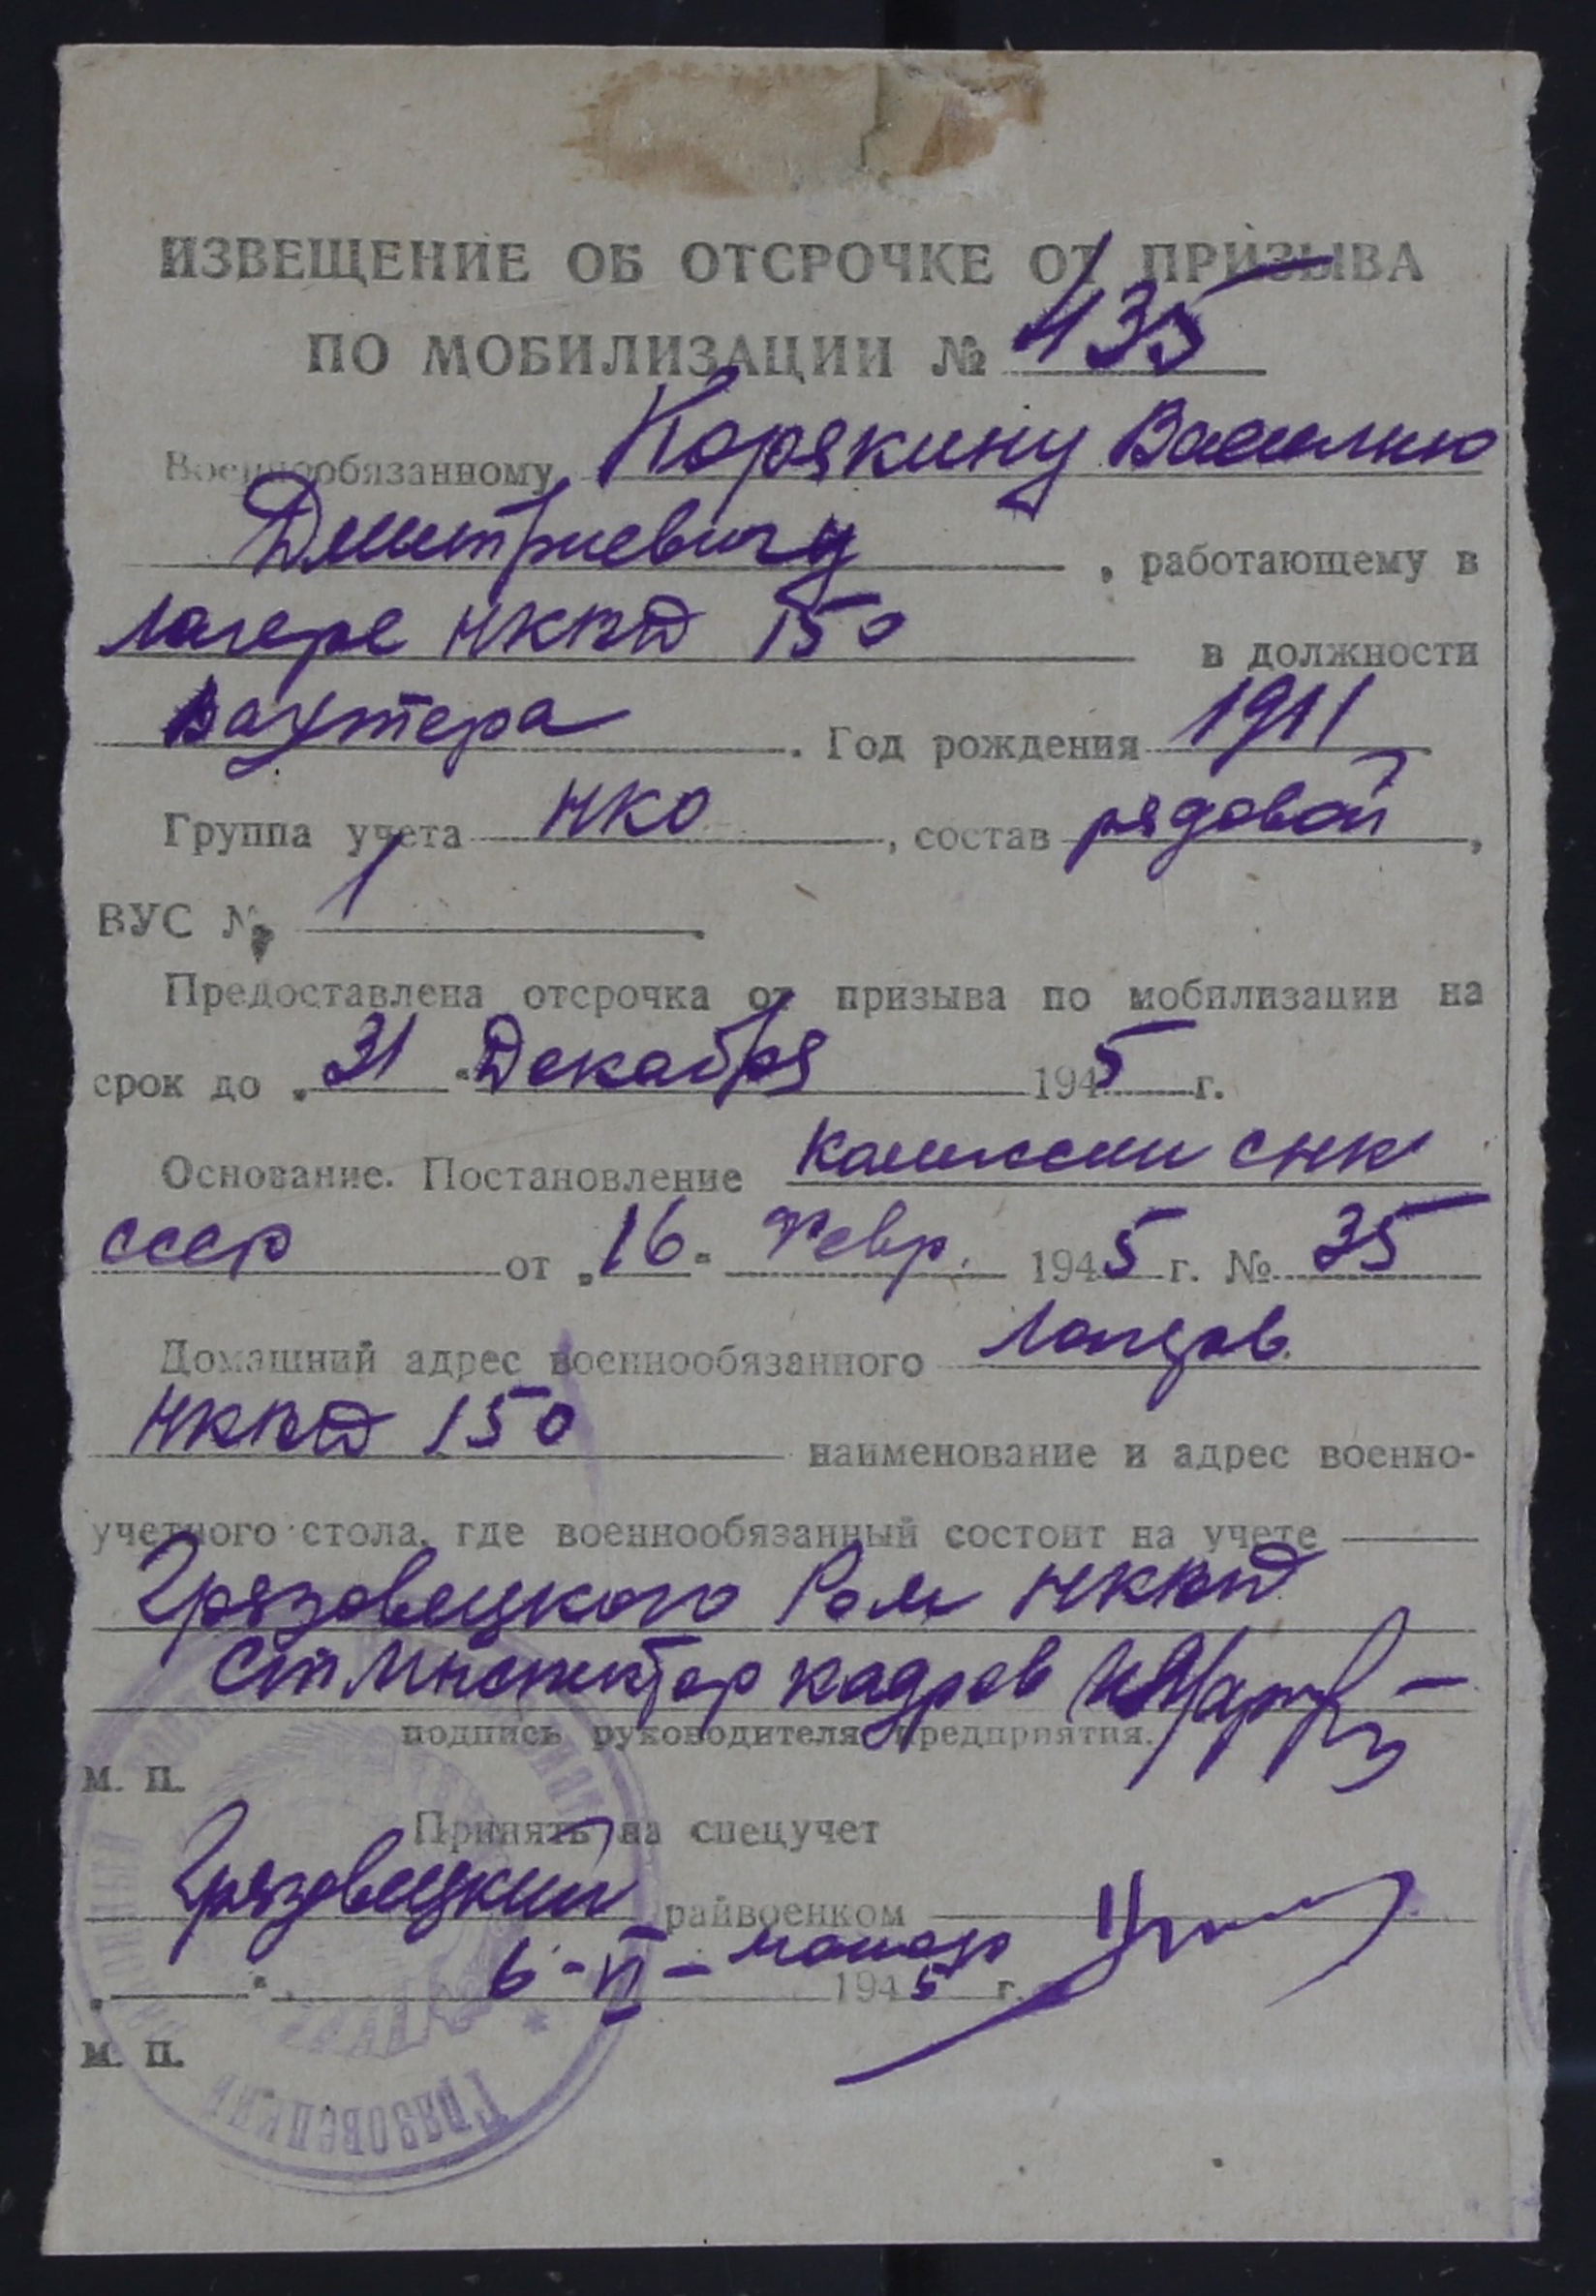 ИЗВЕЩЕНИЕ ОБ ОТСРОЧКЕ ОТ ПРИЗЫВА
ПО МОБИЛИЗАЦИИ № 435
Военнообязанному Корякину Василию
Дмитриевичу, работающему в
лагере НКВД 150 в должности
Вахтера. Год рождения 1911
Группа учета НКО, состав рядовой,
ВУС № 1.
Предоставлена отсрочка от призыва по мобилизации на
срок до „31“ Декабря 1945 г.
Основание. Постановление комиссии СНК
СССР от „16“ Февр. 1945 г. № 35
Домашний адрес военнообязанного
НКВД 150 наименование и адрес военно-
учетного стола, где военнообязанный состоит на учете
Грязовецкого НКВД
Ст Инспектор кадров
подпись руководителя предприятия.
М. П.
Принять на спецучет
Грязовецкий райвоенком
майор
6-VI- 1945 г.
М. П.
Грязовецкий